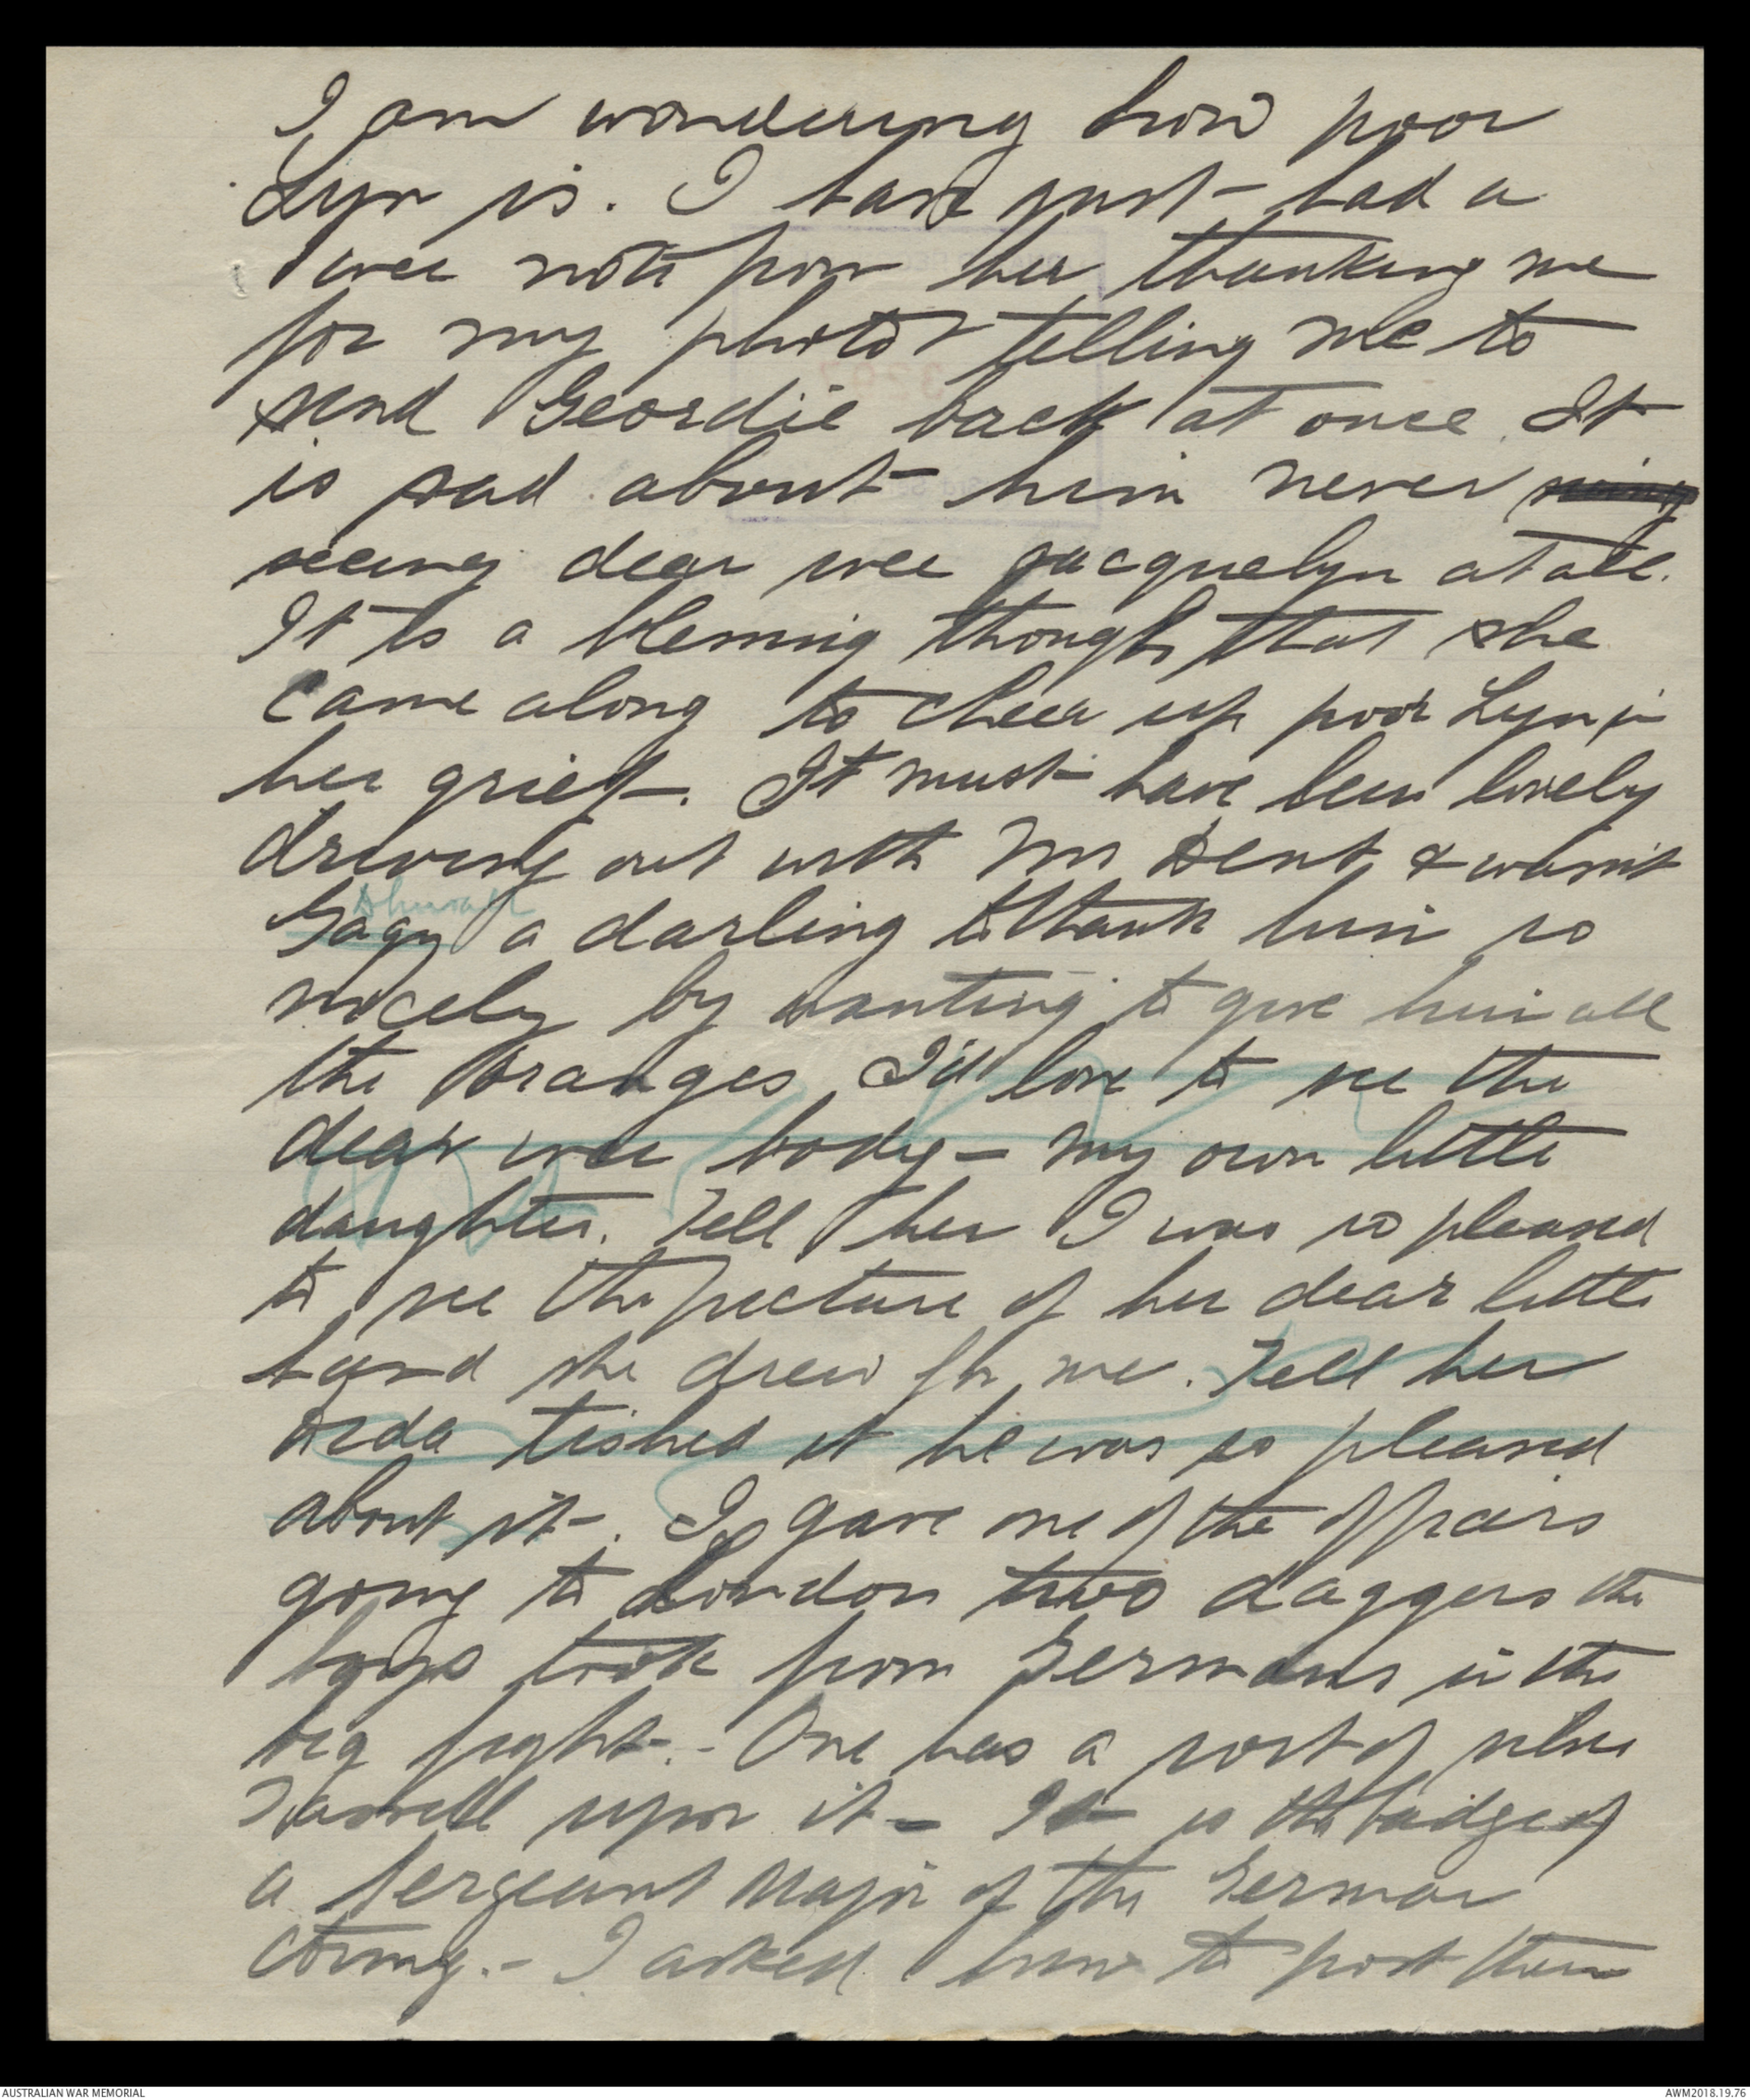 I am wondering how poor
Lyn is. I have just had a
wee note from her thanking me
for my photo & telling me to
send Geordie back at once. It
is sad about him never seeing
seeing dear wee Jacquelyn at all.
It is a blessing though that she
came along to cheer up poor Lyn in
her grief. It must have been lovely
driving out with Mr Dent, & wasn't
Gagy a darling to thank him so
nicely by wanting to give him all
the oranges. I'd love to see the
dear wee body – my own little
daughter. Tell her I was so pleased
to see the picture of her dear little
hand she drew for me. Tell her
Dida tished it he was so pleased
about it –. I gave one of the officers
going to London two daggers the
boys took from Germans in the
big fight. – One has a sort of silver
Tassell upon it – It is the badge of
a Sergeant Major of the German
Army. – I asked him to post them
AUSTRALIAN WAR MEMORIAL
AWM2018.19.76